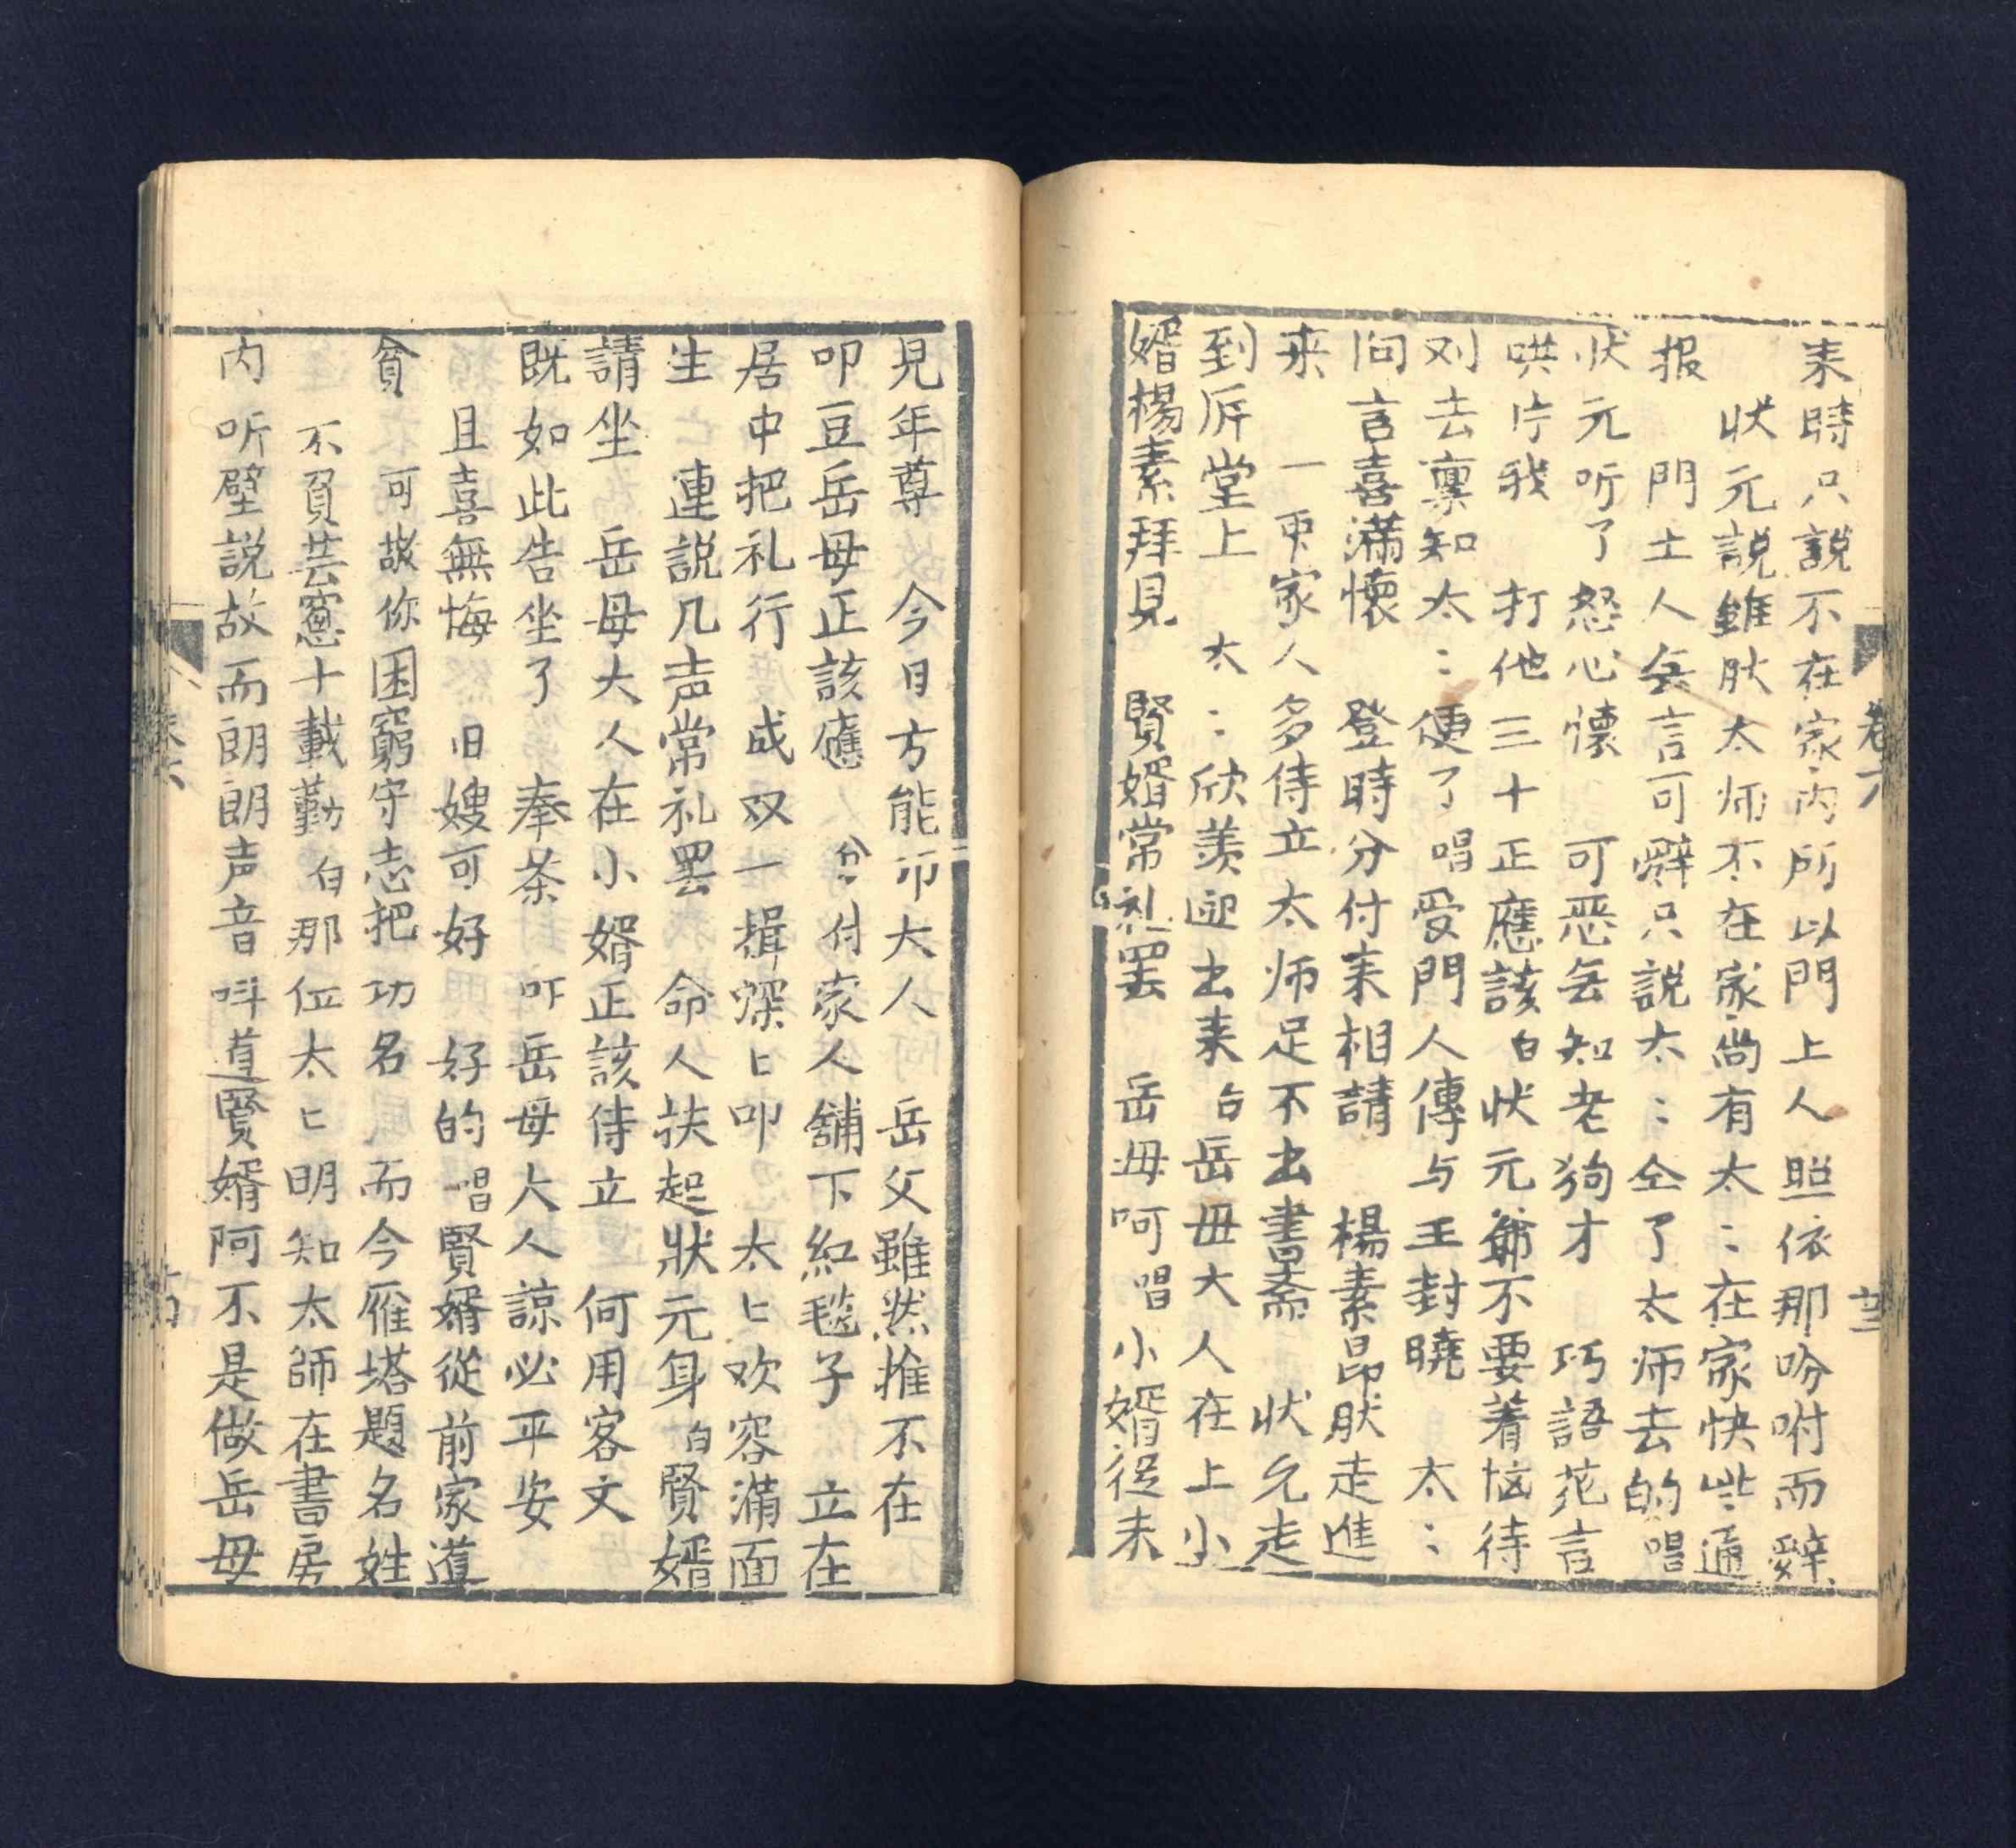 卷六
来時只説不在家内所以門上人照依那吩咐而辞
状元説雖肰太师不在家尚有太:在家快些通
报　門士人無言可辤只説太:仝了太师去的唱
状元听了怒心懷　可恶無知老狗才　巧語花言
哄庁我　打他三十正應該白状元爺不要着恼待
刘去禀知太:便了唱受門人傳与王封曉　太:
问言喜满懷　登時分付来相請　楊素昂肰走進
来　一䎡家人多侍立太师足不出書斋　状允走
到㕔堂上　太:欣羡迎出来白岳毌大人在上小
婿楊素拜見　賢婿常礼罢　岳毋呵唱小婿從未
見年尊　今日方能叩大人　岳父雖然推不在
叩豆岳母正該應　分付家人舖下紅毯子　立在
居中把礼行　成双一揖深匕叩　太匕欢容滿面
生　連説几声常礼罢　命人扶起狀元身白賢婿
請坐　岳母大人在小婿正該侍立　何用客文
既如此告坐了　奉茶　吓岳母大人諒必平安
且喜無悔　旧嫂可好　好的唱賢婿從前家道
貧　可敬你困窮守志把功名　而今雁塔題名姓
不負芸窻十載勤白那位太匕明知太師在書房
内听壁説故而朗朗声音呌道賢婿阿不是做岳母